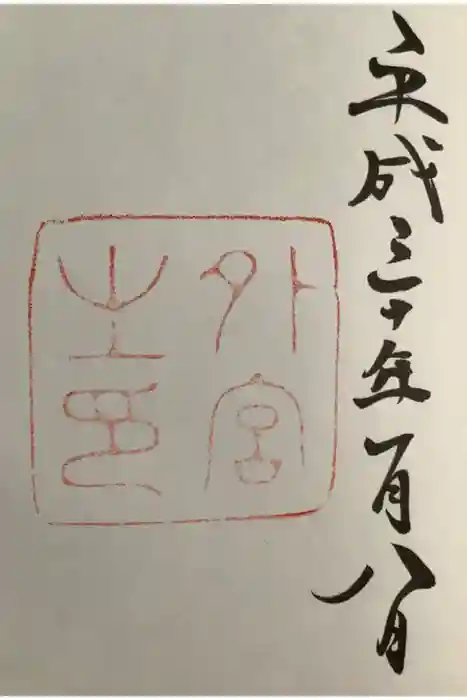 平成三十年一月八日
外宮
之印